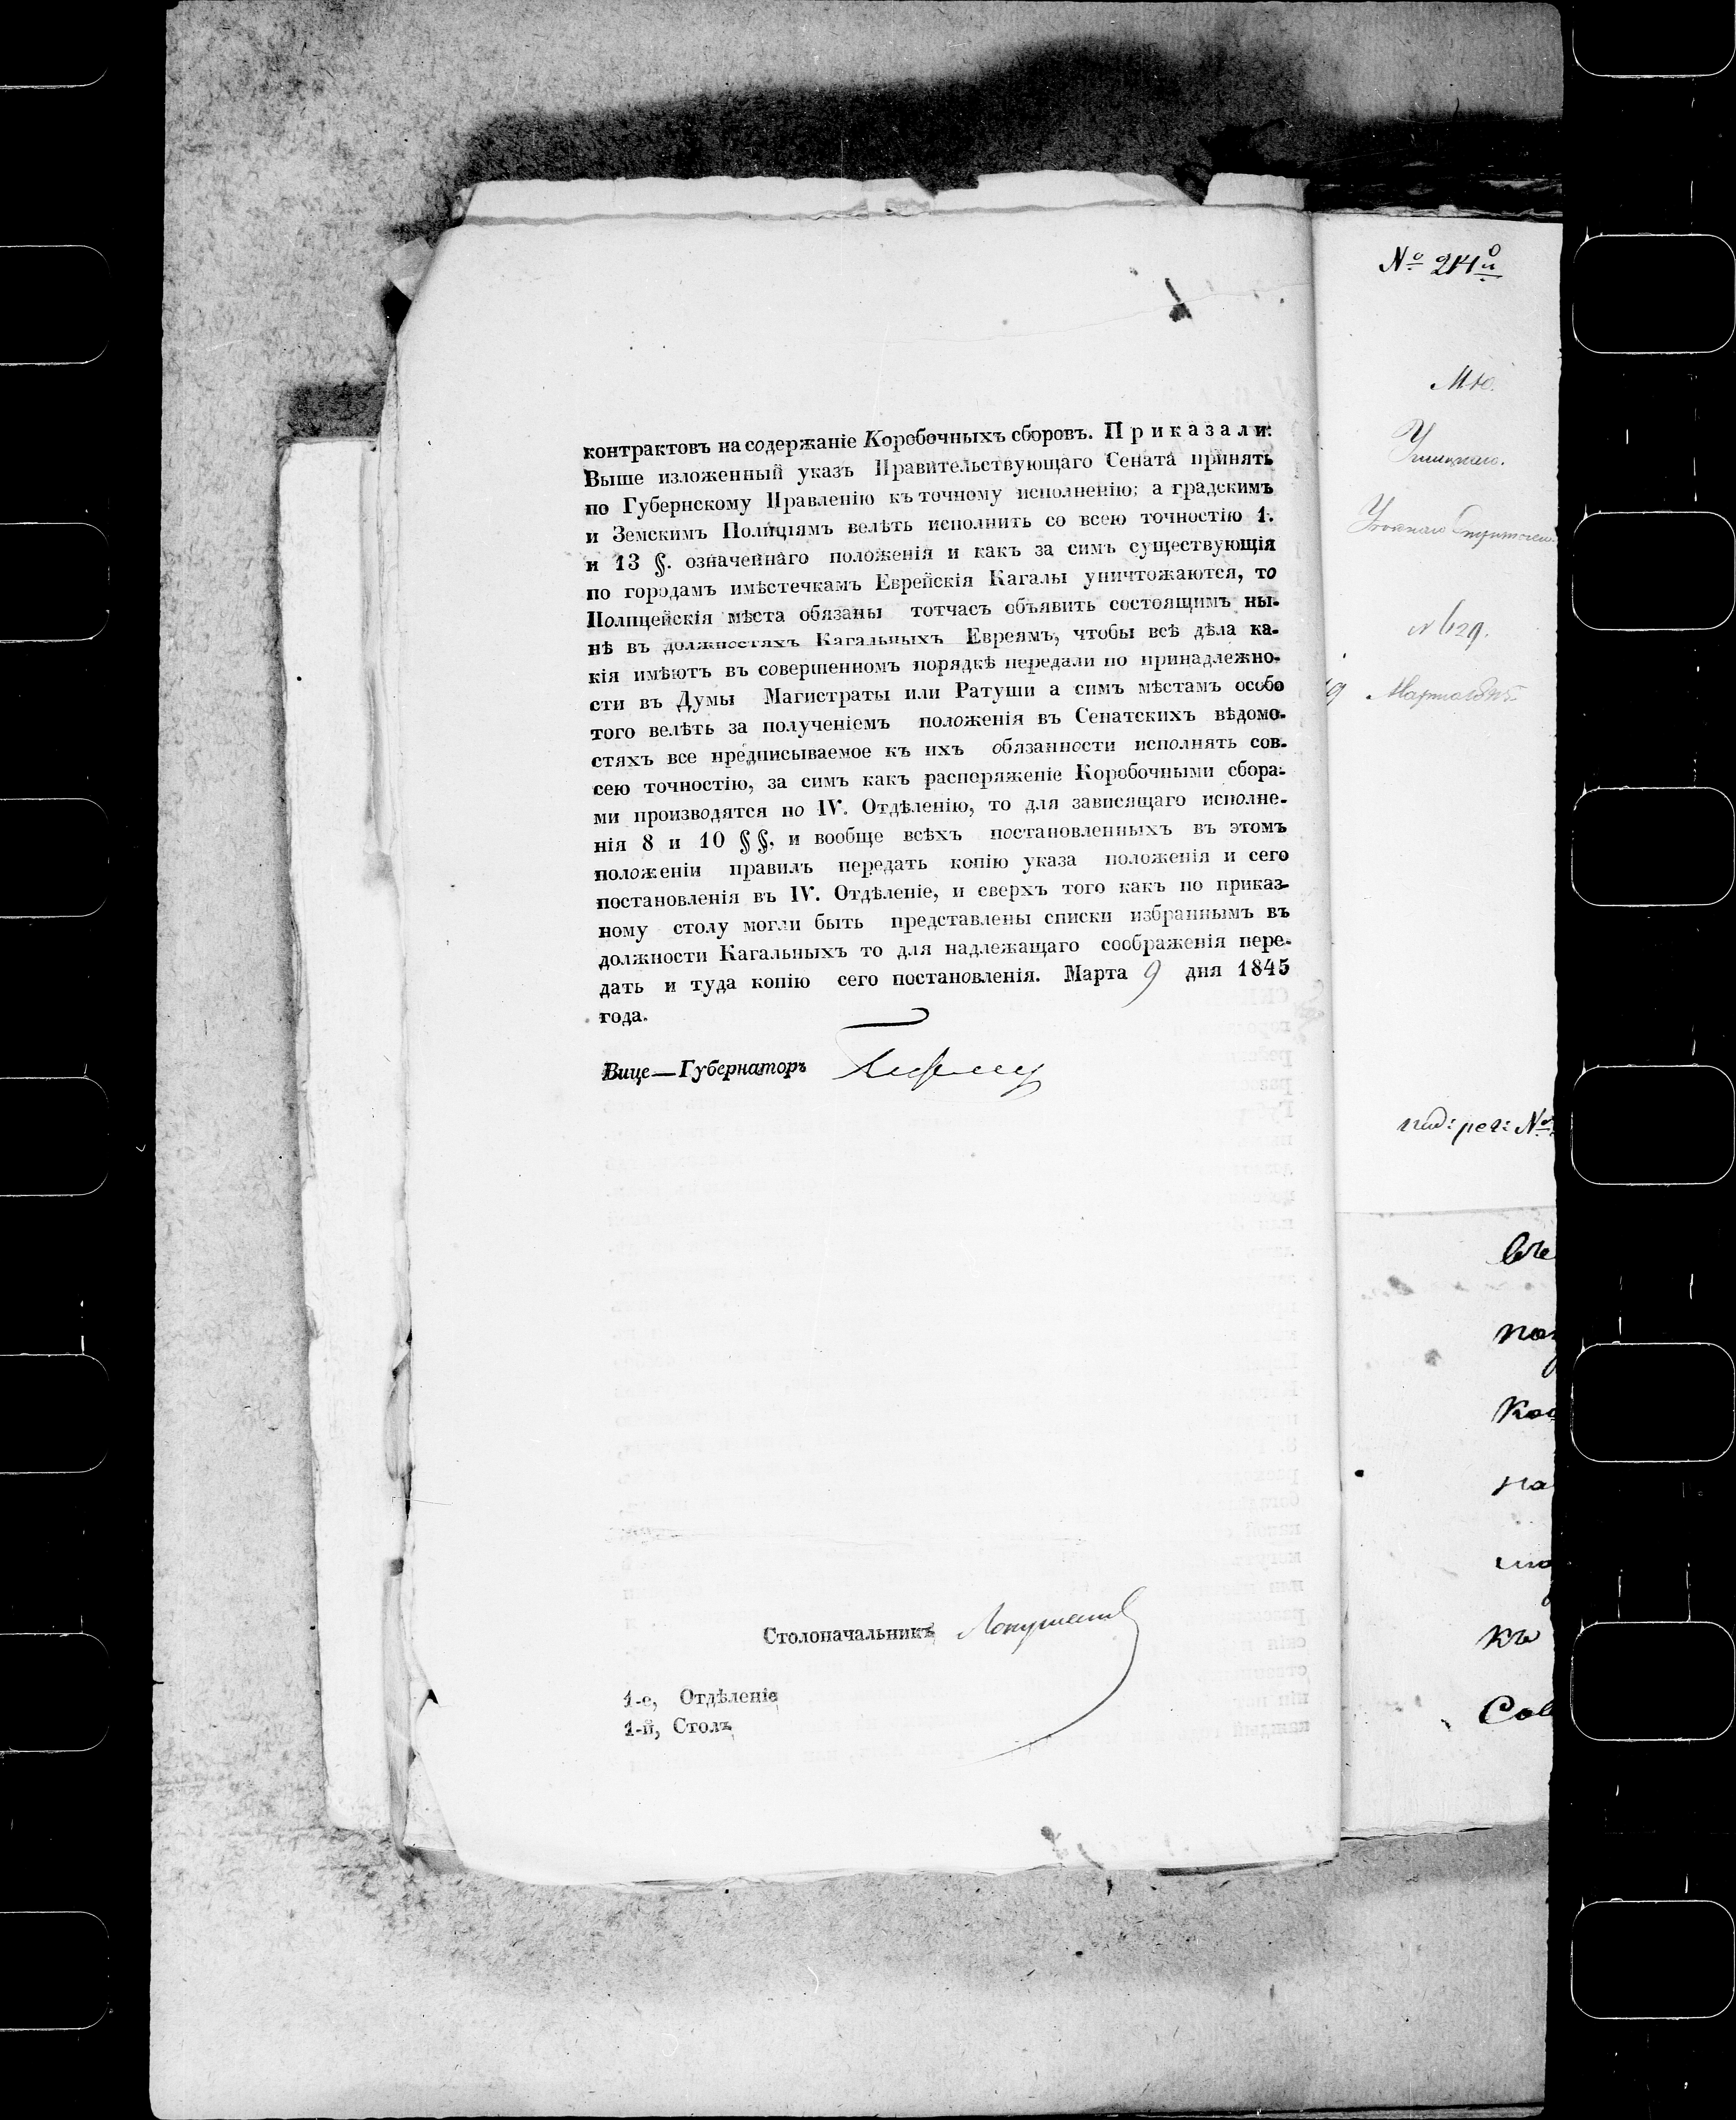 контрактовъ на содержаніе Коробочныхъ сборовъ. Приказали:
Выше изложенный указъ Правительствующаго Сената принять
по Губернскому Правленію къ точному исполненію; а градскимъ
и Земскимъ Полиціямъ велѣть исполнить со всею точностію 1.
и 13 §. означеннаго положенія и какъ за симъ существующія
по городамъ имѣстечкамъ Еврейскія Кагалы уничтожаются, то
Полицейскія мѣста обязаны тотчасъ объявить состоящимъ ны-
нѣ въ должностяхъ Кагальныхъ Евреямъ, чтобы всѣ дѣла ка-
кія имѣютъ въ совершенномъ порядкѣ передали по принадлежно-
сти въ Думы Магистраты или Ратуши а симъ мѣстамъ особо
того велѣть за полученіемъ положенія въ Сенатскихъ вѣдомо-
стяхъ все предписываемое къ ихъ обязанности исполнять сов-
сею точностію, за симъ какъ распоряженіе Коробочными сбора-
ми производятся по IV. Отдѣленію, то для зависящаго исполне-
нія 8 и 10 §§. и вообще всѣхъ постановленныхъ въ этомъ
положеніи правилъ передать копію указа положенія и сего
постановленія въ IV. Отдѣленіе, и сверхъ того какъ по приказ-
ному столу могли быть представлены списки избраннымъ въ
должности Кагальныхъ то для надлежащаго соображенія пере-
дать и туда копію сего постановленія. Марта 9 дня 1845
года.
Вице—Губернаторъ
Столоначальникъ
1-е, Отдѣленіе
1-й, Столъ
№
№ 629.
№
къ